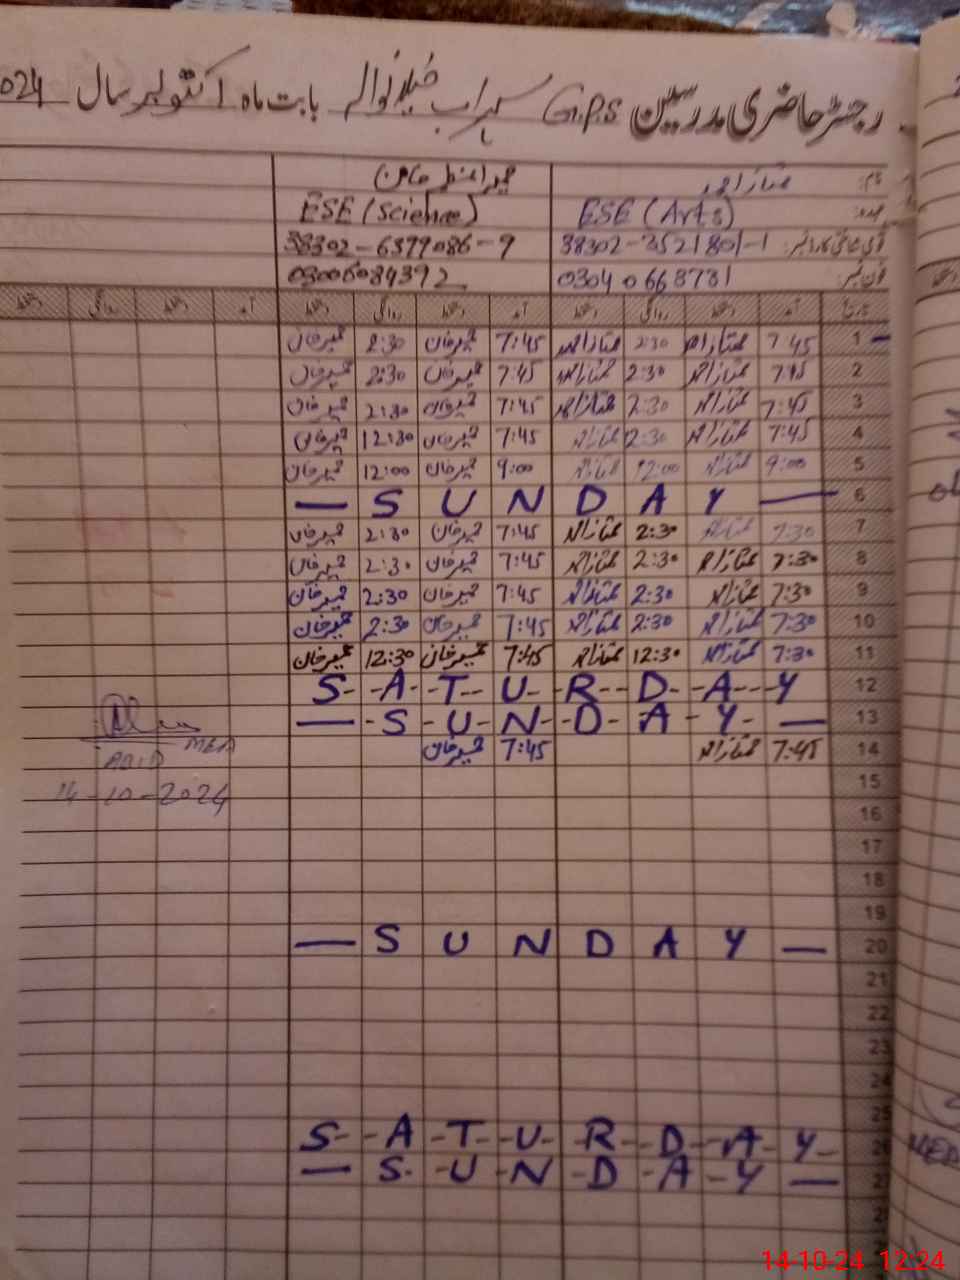 رجسٹر حاضری مدرسین G.P.S سہراب خیلانوالہ بابت ماہ اکتوبر سال 2024
نام: ممتاز احمد
عہدہ: ESE (Arts) ESE (Science)
قومی شناختی کارڈ نمبر: 38302-
فون نمبر: 03006084392
تاریخ آمد دستخط روانگی دستخط آمد دستخط روانگی دستخط آمد دستخط روانگی دستخط
1 7:45 ممتاز احمد 2:30 ممتاز احمد 7:45 حمیر خان 2:30 حمیر خان
2 7:45 ممتاز احمد 2:30 ممتاز احمد 7:45 حمیر خان 2:30 حمیر خان
3 7:45 ممتاز احمد 2:30 ممتاز احمد 7:45 حمیر خان 2:30 حمیر خان
4 7:45 ممتاز احمد 12:30 ممتاز احمد 7:45 حمیر خان 12:30 حمیر خان
5 9:00 ممتاز احمد 12:00 ممتاز احمد 9:00 حمیر خان 12:00 حمیر خان
6 — SUNDAY —
7 7:30 ممتاز احمد 2:30 ممتاز احمد 7:45 حمیر خان 2:30 حمیر خان
8 7:30 ممتاز احمد 2:30 ممتاز احمد 7:45 حمیر خان 2:30 حمیر خان
9 7:30 ممتاز احمد 2:30 ممتاز احمد 7:45 حمیر خان 2:30 حمیر خان
10 7:30 ممتاز احمد 2:30 ممتاز احمد 7:45 حمیر خان 2:30 حمیر خان
11 7:30 ممتاز احمد 12:30 ممتاز احمد 7:45 حمیر خان 12:30 حمیر خان
12 S-A-T-U-R-D-A-Y
13 — S-U-N-D-A-Y —
14 7:45 ممتاز احمد 7:45 حمیر خان
MEA
ABID
14-10-2024
15
16
17
18
19
20 — SUNDAY —
21
22
23
24
25
26 S-A-T-U-R-D-A-Y
27 — S-U-N-D-A-Y —
14-10-24 12:24